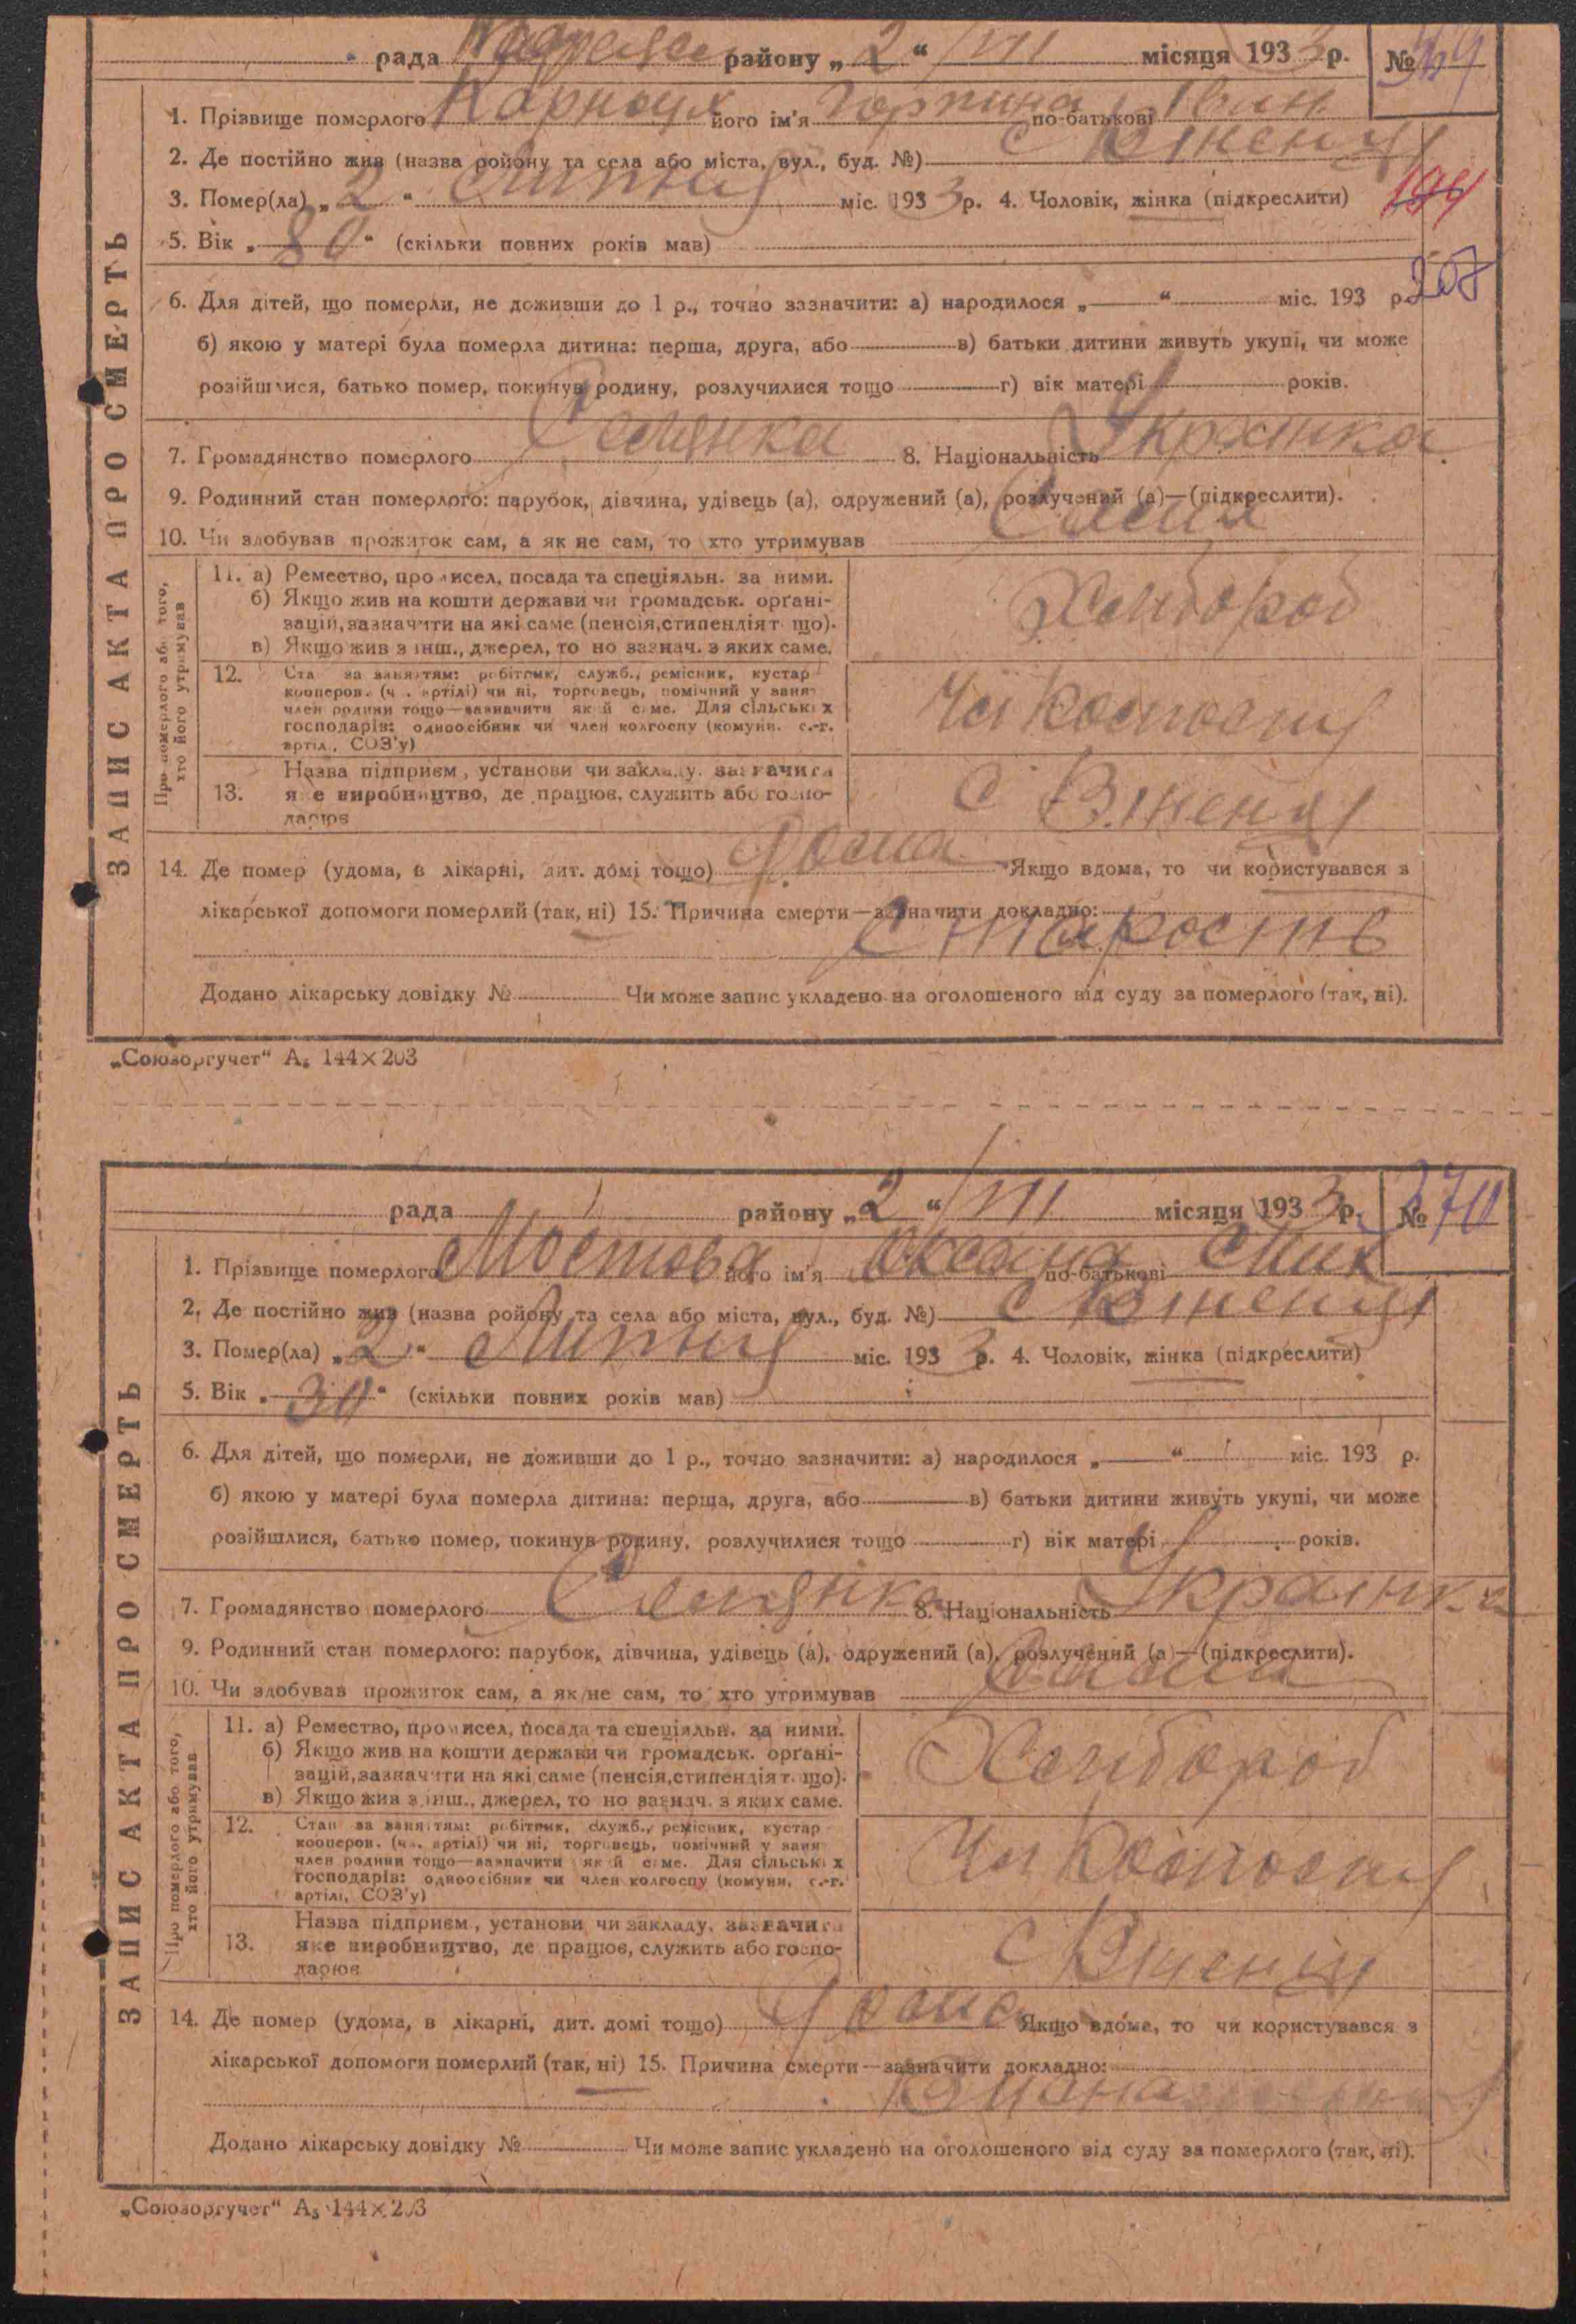 рада району „ 2 “ /VII місяця 1933 р. №
1. Прізвище померлого Карноух його ім'я Горпина по-батькові Іван
2. Де постійно жив (назва ройону та села або міста, вул., буд. №) с
3. Помер(ла) „ 2 “ Липня міс. 1933 р. 4. Чоловік, жінка (підкреслити)
194
5. Вік „ 80 “ (скільки повних років мав)
207
6. Для дітей, що померли, не доживши до 1 р., точно зазначити: а) народилося „ “ міс. 193 р.
б) якою у матері була померла дитина: перша, друга, або в) батьки дитини живуть укупі, чи може
розійшлися, батько помер, покинув родину, розлучилися тощо г) вік матері років.
7. Громадянство померлого Селянка 8. Національність Українка
9. Родинний стан померлого: парубок, дівчина, удівець (а), одружений (а), розлучений (а)—(підкреслити).
10. Чи здобував прожиток сам, а як не сам, то хто утримував Сама
ЗАПИС АКТА ПРО СМЕРТЬ
Про померлого або того,
хто його утримував
11. а) Ремество, промисел, посада та спеціяльн. за ними.
б) Якщо жив на кошти держави чи громадськ. органі-
зацій, зазначити на які саме (пенсія, стипендія т що).
в) Якщо жив з інш., джерел, то но зазнач. з яких саме.
Хлибороб
12. Ста за заняттям: робітник, служб., ремісник, кустар
кооперов. (ч . артілі) чи ні, торговець, помічний у заня
член родини тощо—зазначити як й саме. Для сільськ х
господарів: одноосібник чи член колгоспу (комуни. с.-г.
артіл., СОЗ'у)
Чл
13. Назва підприєм, установи чи закладу, зазначити
яке виробництво, де працює, служить або госпо-
дарює
с
14. Де помер (удома, в лікарні, дит. домі тощо) Дома Якщо вдома, то чи користувався з
лікарської допомоги померлий (так, ні) 15. Причина смерти—зазначити докладно:
Старость
Додано лікарську довідку № Чи може запис укладено на оголошеного від суду за померлого (так, ні).
„Союзоргучет“ А₅ 144×203
рада району „ 2 “ /VII місяця 1933 р. № 370
1. Прізвище померлого Мостова його ім'я Оксана по-батькові Мик
2. Де постійно жив (назва ройону та села або міста, вул., буд. №) с
3. Помер(ла) „ 2 “ Липня міс. 1933 р. 4. Чоловік, жінка (підкреслити)
5. Вік „ 30 “ (скільки повних років мав)
6. Для дітей, що померли, не доживши до 1 р., точно зазначити: а) народилося „ “ міс. 193 р.
б) якою у матері була померла дитина: перша, друга, або в) батьки дитини живуть укупі, чи може
розійшлися, батько помер, покинув родину, розлучилися тощо г) вік матері років.
7. Громадянство померлого Селянка 8. Національність Українка
9. Родинний стан померлого: парубок, дівчина, удівець (а), одружений (а), розлучений (а)—(підкреслити).
10. Чи здобував прожиток сам, а як не сам, то хто утримував Сама
ЗАПИС АКТА ПРО СМЕРТЬ
Про померлого або того,
хто його утримував
11. а) Ремество, промисел, посада та спеціяльн. за ними.
б) Якщо жив на кошти держави чи громадськ. органі-
зацій, зазначити на які саме (пенсія, стипендія т. що).
в) Якщо жив з інш., джерел, то но зазнач. з яких саме.
Хлибороб
12. Стан за заняттям: робітник, служб., ремісник, кустар
кооперов. (чл. артілі) чи ні, торговець, помічний у заня
член родини тощо—зазначити як й саме. Для сільськ х
господарів: одноосібник чи член колгоспу (комуни, с.-г.
артілі, СОЗ'у)
Чл
13. Назва підприєм, установи чи закладу, зазначити
яке виробництво, де працює, служить або госпо-
дарює
с
14. Де помер (удома, в лікарні, дит. домі тощо) Дома Якщо вдома, то чи користувався з
лікарської допомоги померлий (так, ні) 15. Причина смерти—зазначити докладно:
Додано лікарську довідку № Чи може запис укладено на оголошеного від суду за померлого (так, ні).
„Союзоргучет“ А₅ 144×203